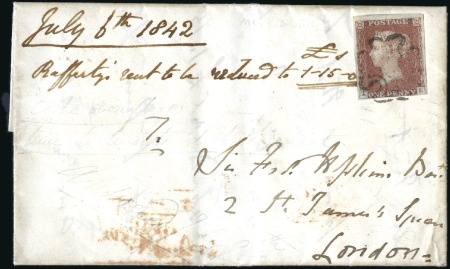 July 6th 1842
£ s
Rafferty's rent to be reduced to 1-15-0
To
Sir Fs. Hopkins Bart
2 St. James's Square
London
ONE PENNY